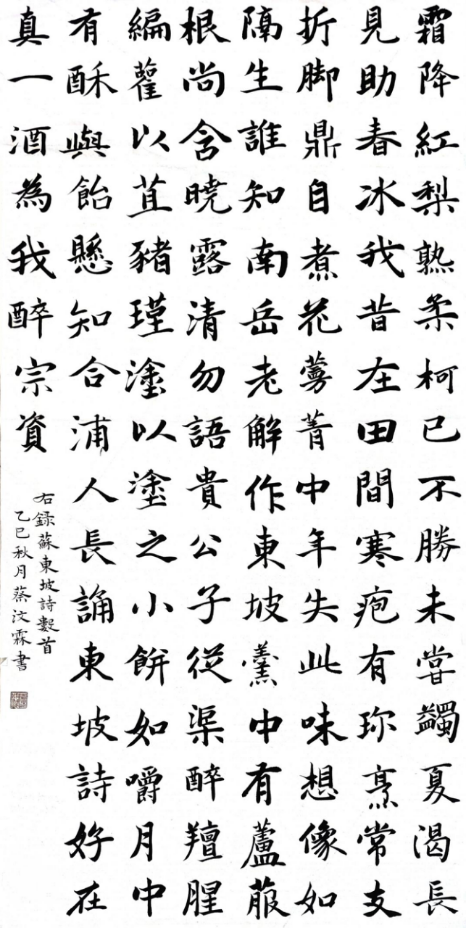 霜降紅梨熟柔柯已不勝未嘗蠲夏渴長
見助春冰我昔在田間寒疱有珍烹常支
折脚鼎自煮花蔓菁中年失此味想像如
隔生誰知南岳老解作東坡羹中有蘆菔
根尚含曉露清勿語貴公子從渠醉羶腥
編雚以苴豬瑾塗以塗之小餅如嚼月中
有酥與飴懸知合浦人長誦東坡詩好在
真一酒為我醉宗資
右錄蘇東坡詩數首
乙巳秋月蔡汶霖書